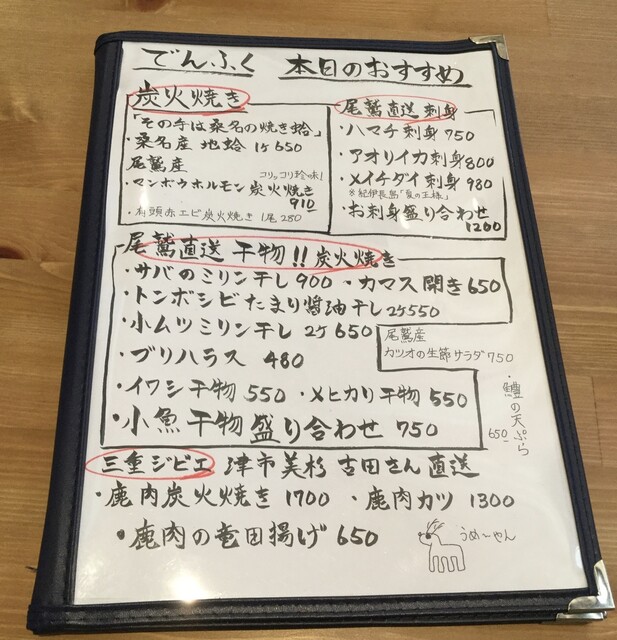 でんふく 本日のおすすめ
炭火焼き
「その手は桑名の焼き蛤」
・桑名産 地蛤 1ケ650
尾鷲産
コリッコリ珍味!
・マンボウホルモン 炭火焼き
910
・有頭赤エビ炭火焼き 1尾280
尾鷲直送 刺身
・ハマチ刺身 750
・アオリイカ刺身 800
・メイチダイ刺身 980
※紀伊長島「夏の王様」
・お刺身盛り合わせ
1200
尾鷲直送 干物!! 炭火焼き
・サバのミリン干し 900 ・カマス開き 650
・トンボシビたまり醤油干し 2ケ550
・小ムツミリン干し 2ケ 650
・ブリハラス 480
・イワシ干物 550 ・メヒカリ干物 550
・小魚干物盛り合わせ 750
尾鷲産
カツオの生節サラダ 750
・鱧の天ぷら
650
三重ジビエ 津市美杉 吉田さん直送
・鹿肉炭火焼き 1700 ・鹿肉カツ 1300
・鹿肉の竜田揚げ 650
うめ〜やん